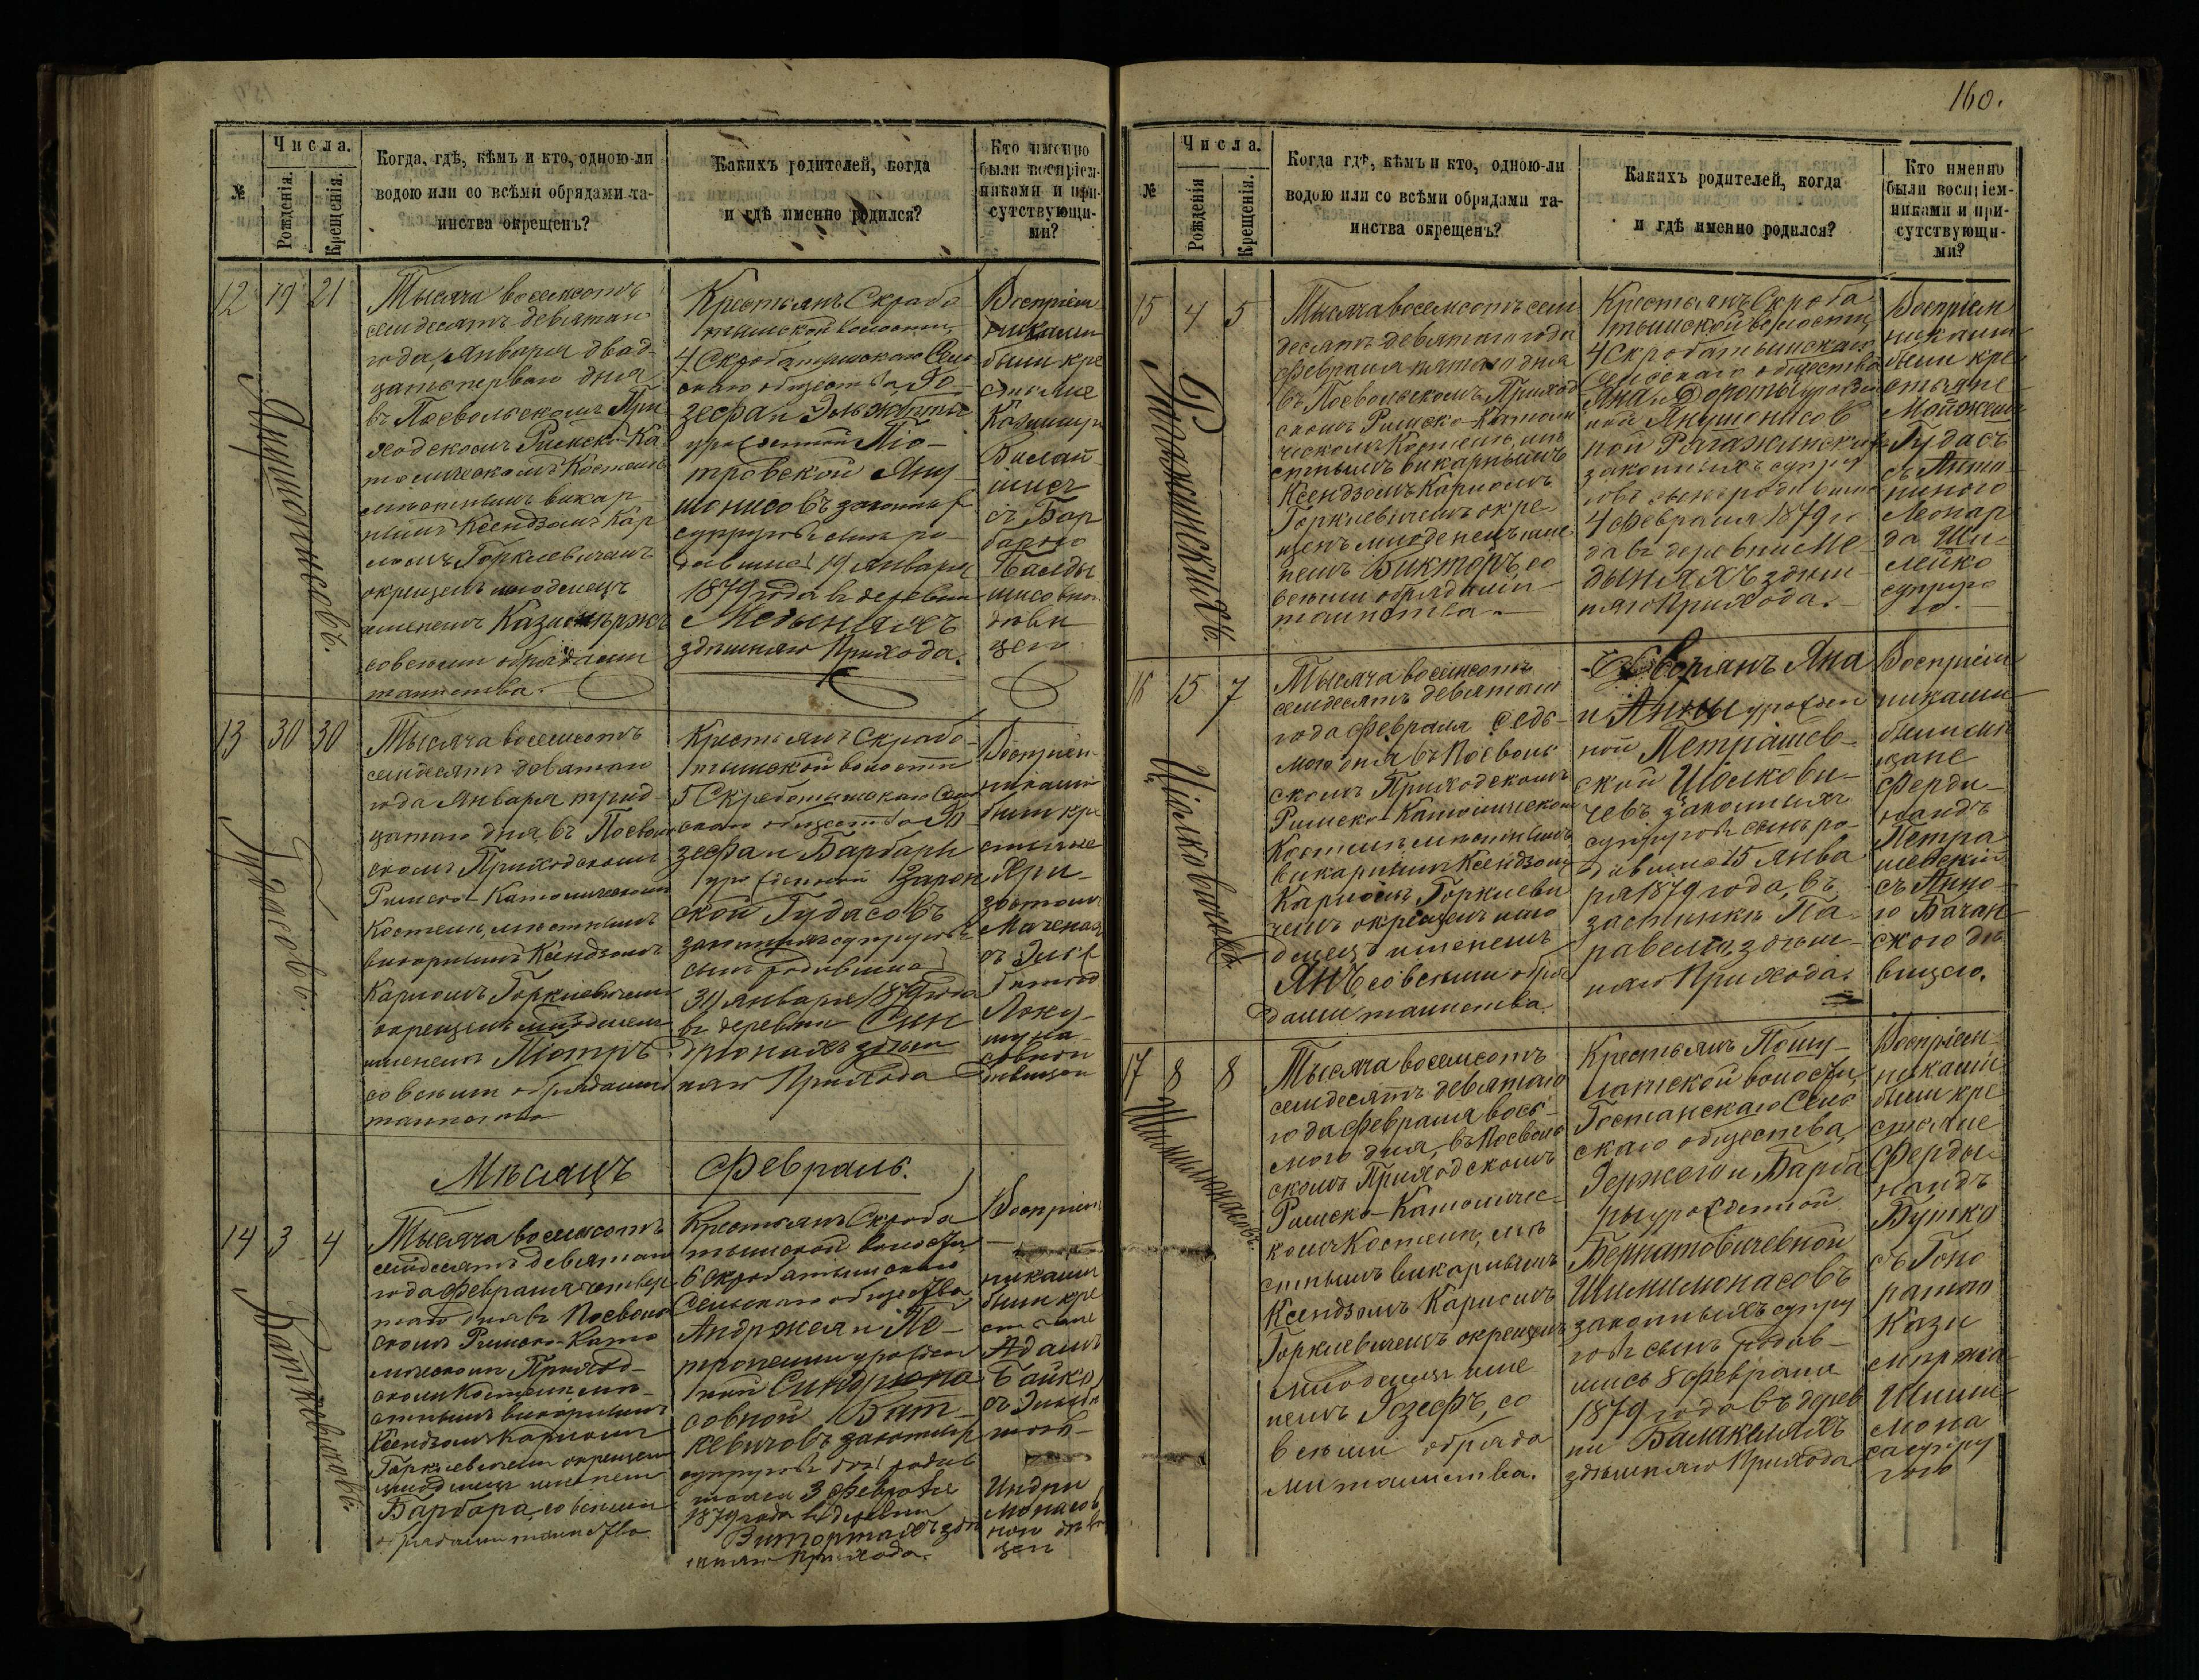 160.
Числа.
№
Рожденія.
Крещенія.
Когда, гдѣ, кѣмъ и кто, одною-ли
водою или со всѣми обрядами та-
инства окрещенъ?
Какихъ родителей, когда
и гдѣ именно родился?
Кто именно
были воспріем-
никами и при-
сутствующи-
ми?
12 19 21
Янушонисовъ.
Тысяча восемсотъ
семдесятъ девятаго
года, Января двад-
цатоперваго дня
въ Посвольскомъ При
ходскомъ Римско-Ка
толическомъ Костелѣ
мѣстнымъ викар
нымъ Ксендзомъ Кар
ломъ Горклевичемъ
окрещенъ младенецъ
именемъ
совсѣми обрядами
таинства.
Крестьянъ Скробо
тышской волости,
4 Скроботышскаго Сель
скаго общества, Іо-
зефа и Эльжбеты
урожденной Піо-
тровской Яну
шонисовъ законных
супруговъ сынъ ро-
дившійся 19 Января
1879 года въ деревни
Медыняхъ
здѣшняго Прихода.
Воспріем
никами
были кре
стьяне
Казимиръ
съ Бар
барою
дѣви
цею
13 30 30
Гудасовъ.
Тысяча восемсотъ
семдесятъ девятаго
года Января трид-
цатаго дня, въ Посволь
скомъ Приходскомъ
Римско-Католическомъ
Костелѣ, мѣстнымъ
викарнымъ Ксендзомъ
Карломъ Горклевичемъ
окрещенъ младенецъ
именемъ Піотръ
со всѣми обрядами
таинства
Крестьянъ Скробо-
тышской волости
5 Скроботышскаго Сель
скаго общества Іо
зефа и Барбары
урожденной Зарон
ской Гудасовъ
законныхъ супруговъ
сынъ родившійся
30 Января 1879 года
въ деревни Син
дріонахъ здѣш
няго Прихода
Воспріем
никами
были кре
стьяне
дѣвицею
Мѣсяцъ Февраль.
14 3 4
Баткевичовъ.
Тысяча восемсотъ
семдесятъ девятаго
года Февраля четвер
таго дня въ Посволь
скомъ Римско-Като
лическомъ Приход-
скомъ Костелѣ мѣ-
стнымъ викарнымъ
Ксендзомъ Карломъ
Горклевичемъ окрещена
младенецъ именемъ
Барбара, со всѣми
обрядами таинства
Крестьянъ Скробо
тышской волости
6 Скроботышскаго
Сельскаго общества,
Анджея и Пе-
тронели урожден
ной Синдріона
совной Бат-
кевичовъ законных
супруговъ дочь родив
шаяся 3 Февраля
1879 года въ деревни
здѣ
шняго Прихода.
Воспріем
никами
были кре
стьяне
Адамъ
Байко
съ Эльжбе
тою
дѣви
цею
Числа.
№
Рожденія
Крещенія.
Когда гдѣ, кѣмъ и кто, одною-ли
водою или со всѣми обрядами та-
инства окрещенъ?
Какихъ родителей, когда
и гдѣ именно родился?
Кто именно
были воспріем-
никами и при-
сутствующи-
ми?
15 4 5
Рагажинскихъ.
Тысяча восемсотъ сем
десятъ девятаго года
Февраля пятаго дня
въ Посвольскомъ Приход
скомъ Римско-Католи
ческомъ Костелѣ, мѣ
стнымъ викарнымъ
Ксендзомъ Карломъ
Горклевичемъ окре-
щенъ младенецъ име
немъ Викторъ, со
всѣми обрядами
таинства.
Крестьянъ Скроба-
тышской волости,
4 Скроботышскаго
Сельскаго общества
Яна и Дороты урожден
ной Янушонисов
ной Рагажинскихъ
законныхъ супру
говъ сынъ родившійся
4 Февраля 1879 го
да въ деревни Ме-
дыняхъ здѣш-
няго Прихода.
Воспріем
никами
были кре
стьяне
Гудасъ
съ Анто-
ниною
Леонар
да Ши-
лейко
супруго
ю.
16 15 7
Ціолковичовъ.
Тысяча восемсотъ
семдесятъ девятаго
года Февраля седь-
мого дня въ Посволь
скомъ Приходскомъ
Римско-Католическомъ
Костелѣ мѣстнымъ
викарнымъ Ксендзомъ
Карломъ Горклеви
чемъ окрещенъ мла
денецъ именемъ
Янъ, со всѣми обря
дами таинства.
Дворянъ Яна
и Анны урожден
ной Петрашев-
ской Ціолкови-
чевъ законныхъ
супруговъ сынъ ро-
дившійся 15 Янва
ря 1879 года, въ
застѣнкѣ Па-
здѣш-
няго Прихода.
Воспріем
никами
были мѣ
щане
Ферди-
нандъ
Петра
шевскій
съ Анно-
ю Бачан-
скою дѣ
вицею.
17 8 8
Шимилюнасовъ.
Тысяча восемсотъ
семдесятъ девятаго
года Февраля вось-
мого дня, въ Посволь
скомъ Приходскомъ
Римско-Католичес-
комъ Костелѣ, мѣ
стнымъ викарнымъ
Ксендзомъ Карломъ
Горклевичемъ окрещенъ
младенецъ име
немъ Іозефъ, со
всѣми обряда
ми таинства.
Крестьянъ Пошу-
латской волости,
Гостанскаго Сель
скаго общества,
Іержего и Барба
ры урожденной
Бернатовичевной
Шимилюнасовъ
законныхъ супру
говъ сынъ родив-
шись 8 Февраля
1879 года въ дерев
ни Балакеляхъ
здѣшняго Прихода
Воспріем-
никами
были кре
стьяне
Ферды-
нандъ
Бутко
съ Гоно
ратою
Кази
миржа
Шими
люна
са супру
гою